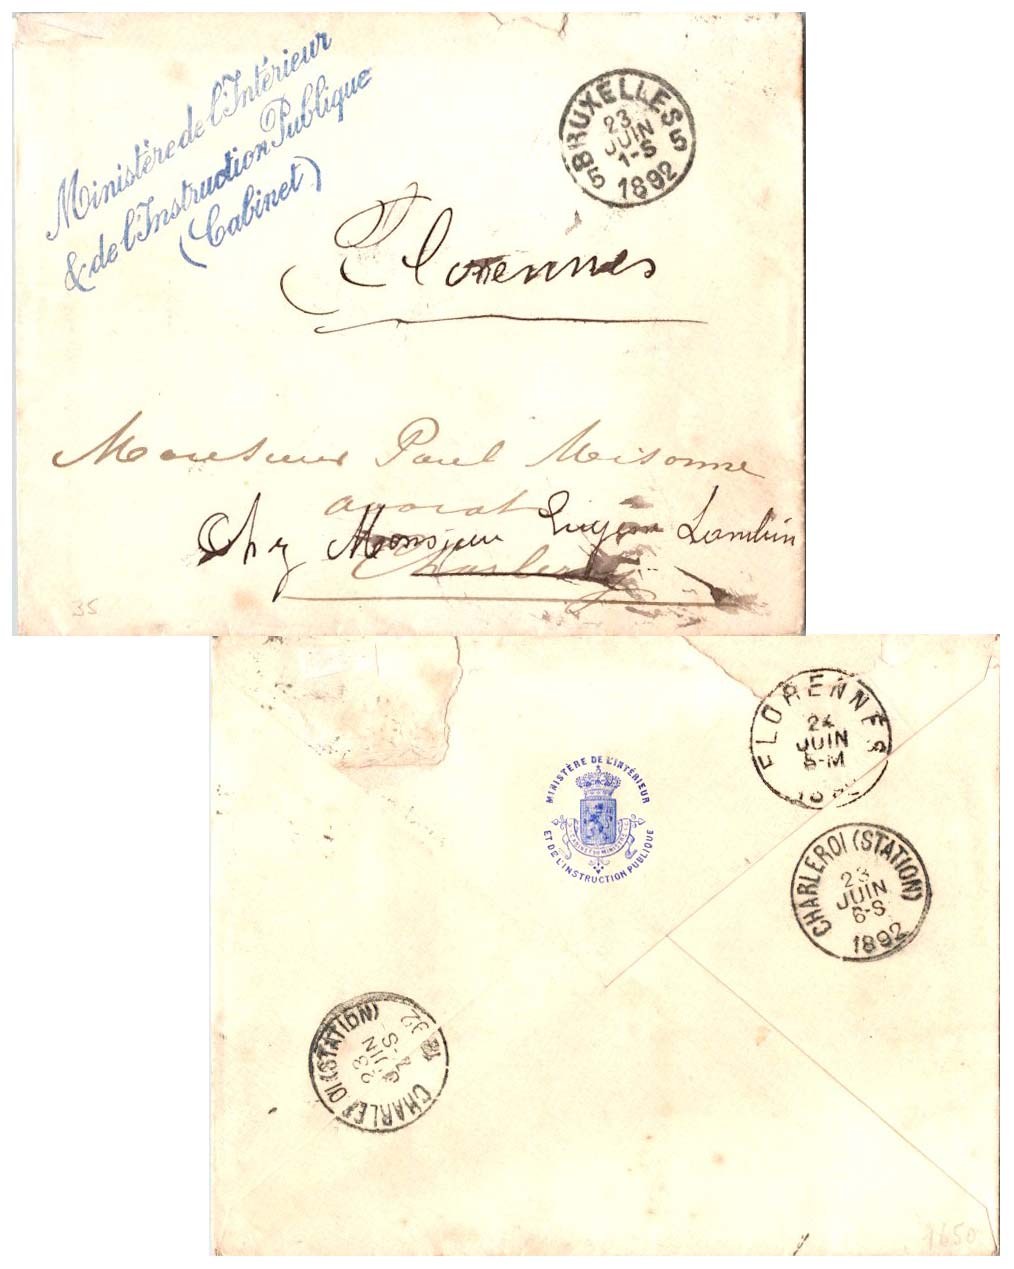 Ministère de l'Intérieur
& de l'Instruction Publique
(Cabinet)
5 BRUXELLES 5
23
JUIN
1-S
1892
Florennes
Monsieur Paul Misonne
avocat
Chez Monsieur Eugène Lambin
Charleroi
35
FLORENNES
24
JUIN
5-M
MINISTÈRE DE L'INTÉRIEUR
ET DE L'INSTRUCTION PUBLIQUE
CABINET DU MINISTRE
CHARLEROI (STATION)
23
JUIN
6-S
1892
CHARLEROI (STATION)
23
JUIN
7-S
1650